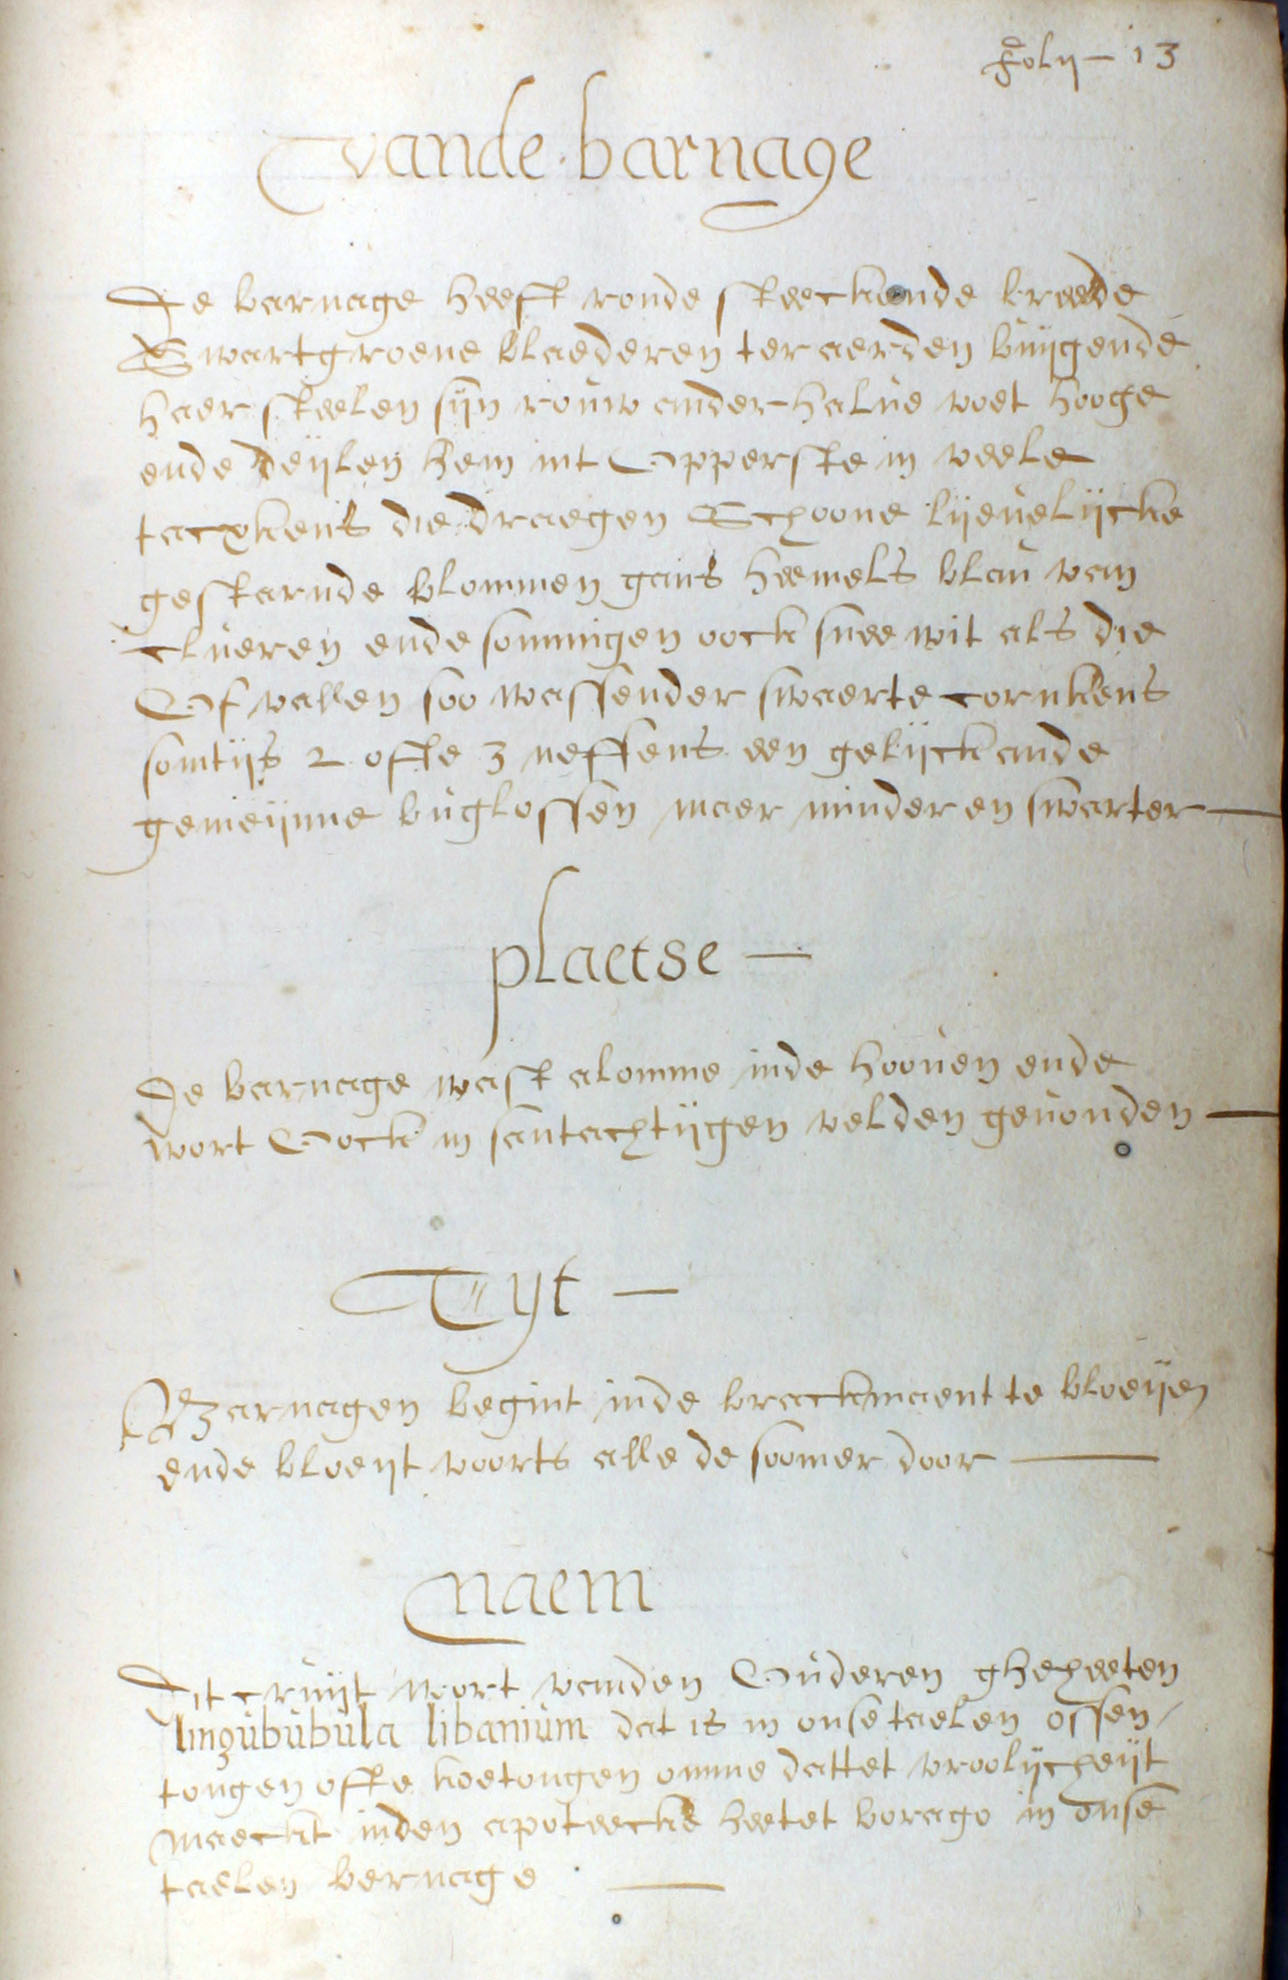 Folij - 13
Vande barnage
De barnage heeft ronde steeckende breede
Swartgroene blaederen ter aerden buijgende
haer steelen sijn rouw anderhalve voet hooge
ende deijlen hem int Opperste in veele
tacxkens die draegen Schoone lijevelijcke
gestarnde blommen gans heemels blau van
clueren ende sommigen oock snee wit als die
Of vallen soo wassender swaerte cornkens
somtijs 2 ofte 3 neffens een gelijck ande
gemeijnne buglossen maer minder en swarter -
plaetse -
De barnage wast alomme inde hooven ende
wort Oock in santachtijgen velden gevonden -
Tijt -
Barnagen begint inde brackmaent te bloeijen
ende bloeijt voorts alle de soomer door -
Naem
Dit cruijt wort vanden Ouderen ghexeeten
lingububula libanium dat is in onse taelen ossen/
tongen ofte koetongen omme dattet vroolijcheijt
maeckt inden apoteecke heetet borago in onse
taelen bernage -